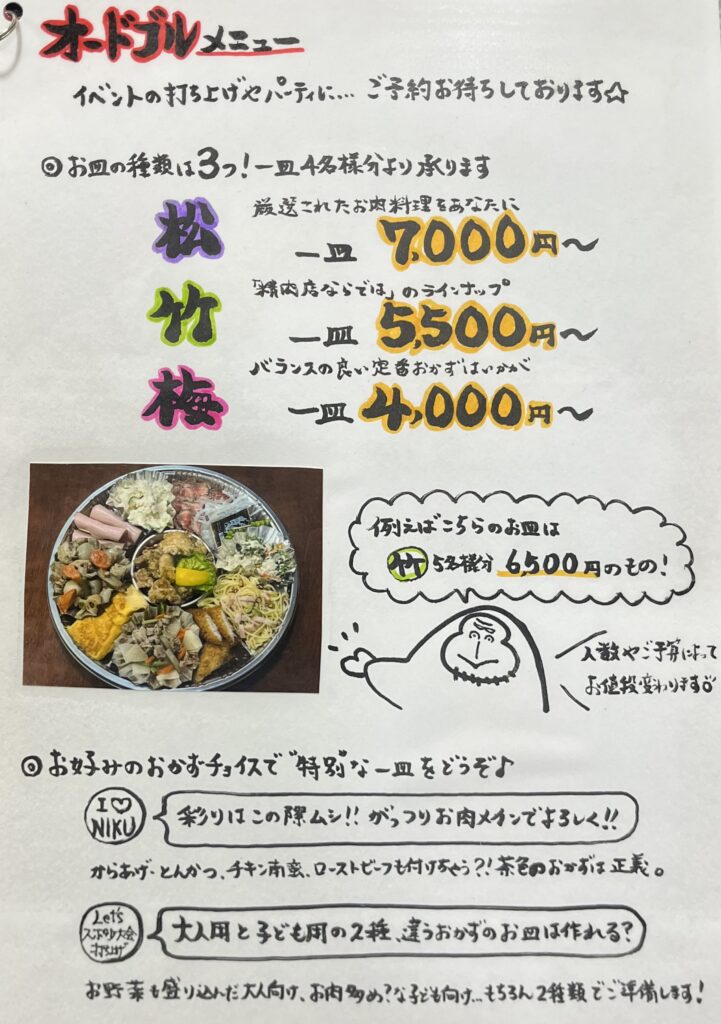 オードブルメニュー
イベントの打ち上げやパーティに… ご予約お待ちしております☆
◎お皿の種類は3つ!一皿4名様分より承ります
松
厳選されたお肉料理をあなたに
一皿 7,000円〜
竹
「精肉店ならでは」のラインナップ
一皿 5,500円〜
梅
バランスの良い定番おかずはいかが
一皿 4,000円〜
例えばこちらのお皿は
竹 5名様分 6,500円のもの!
人数やご予算によって
お値段変わります
◎お好みのおかずチョイスで"特別"な一皿をどうぞ♪
I♡
NIKU
彩りはこの際ムシ!! がっつりお肉メインでよろしく!!
からあげ、とんかつ、チキン南蛮、ローストビーフも付けちゃう?!茶色のおかずは正義。
Let's
スポーツ大会
打ち上げ
大人用と子ども用の2種、違うおかずのお皿は作れる?
お野菜も盛り込んだ大人向け、お肉多め?な子ども向け…もちろん2種類でご準備します!